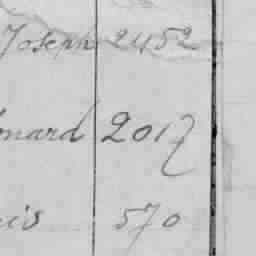 Joseph 2452
onard 2017
uis 570